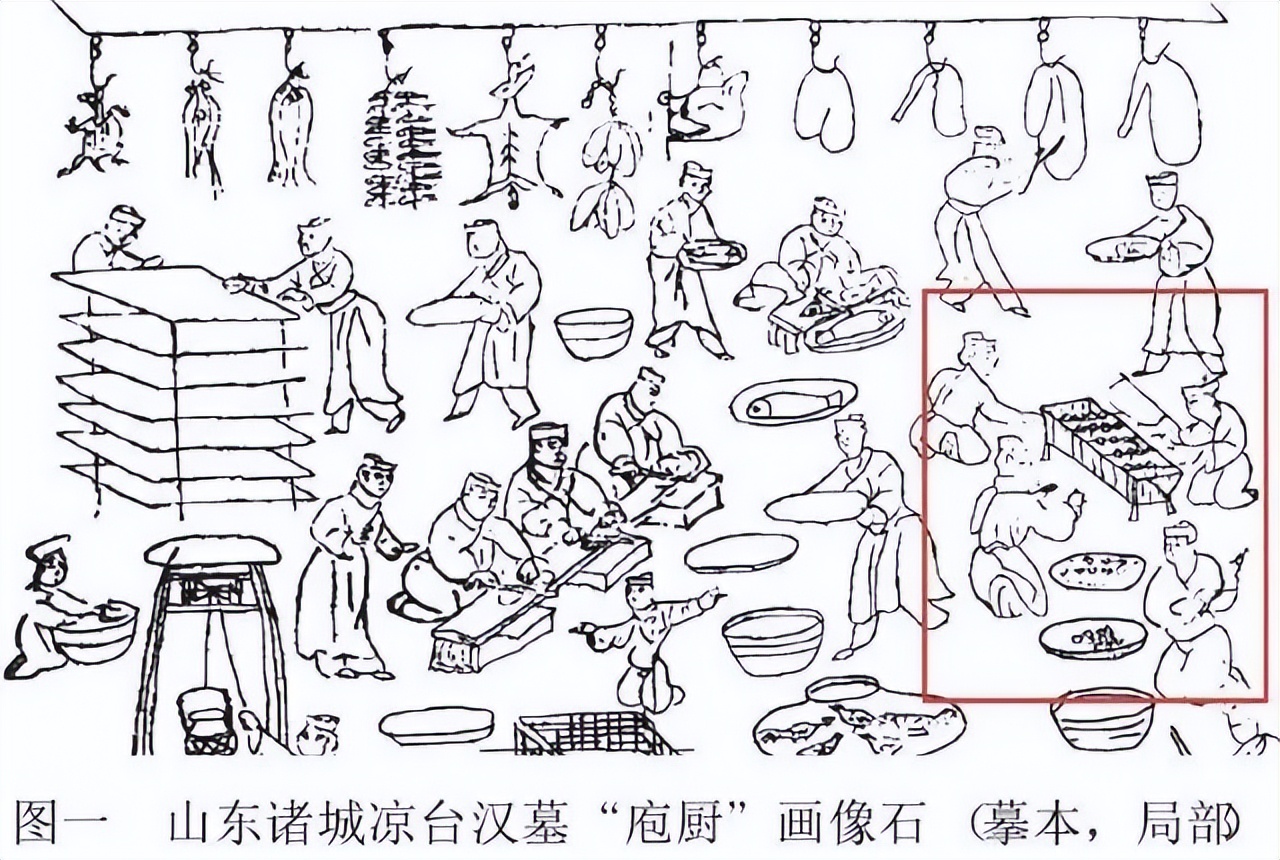 图一 山东诸城凉台汉墓“庖厨”画像石 (摹本，局部)